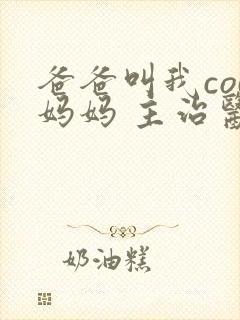 爸爸叫我co
妈妈 主治
奶油糕